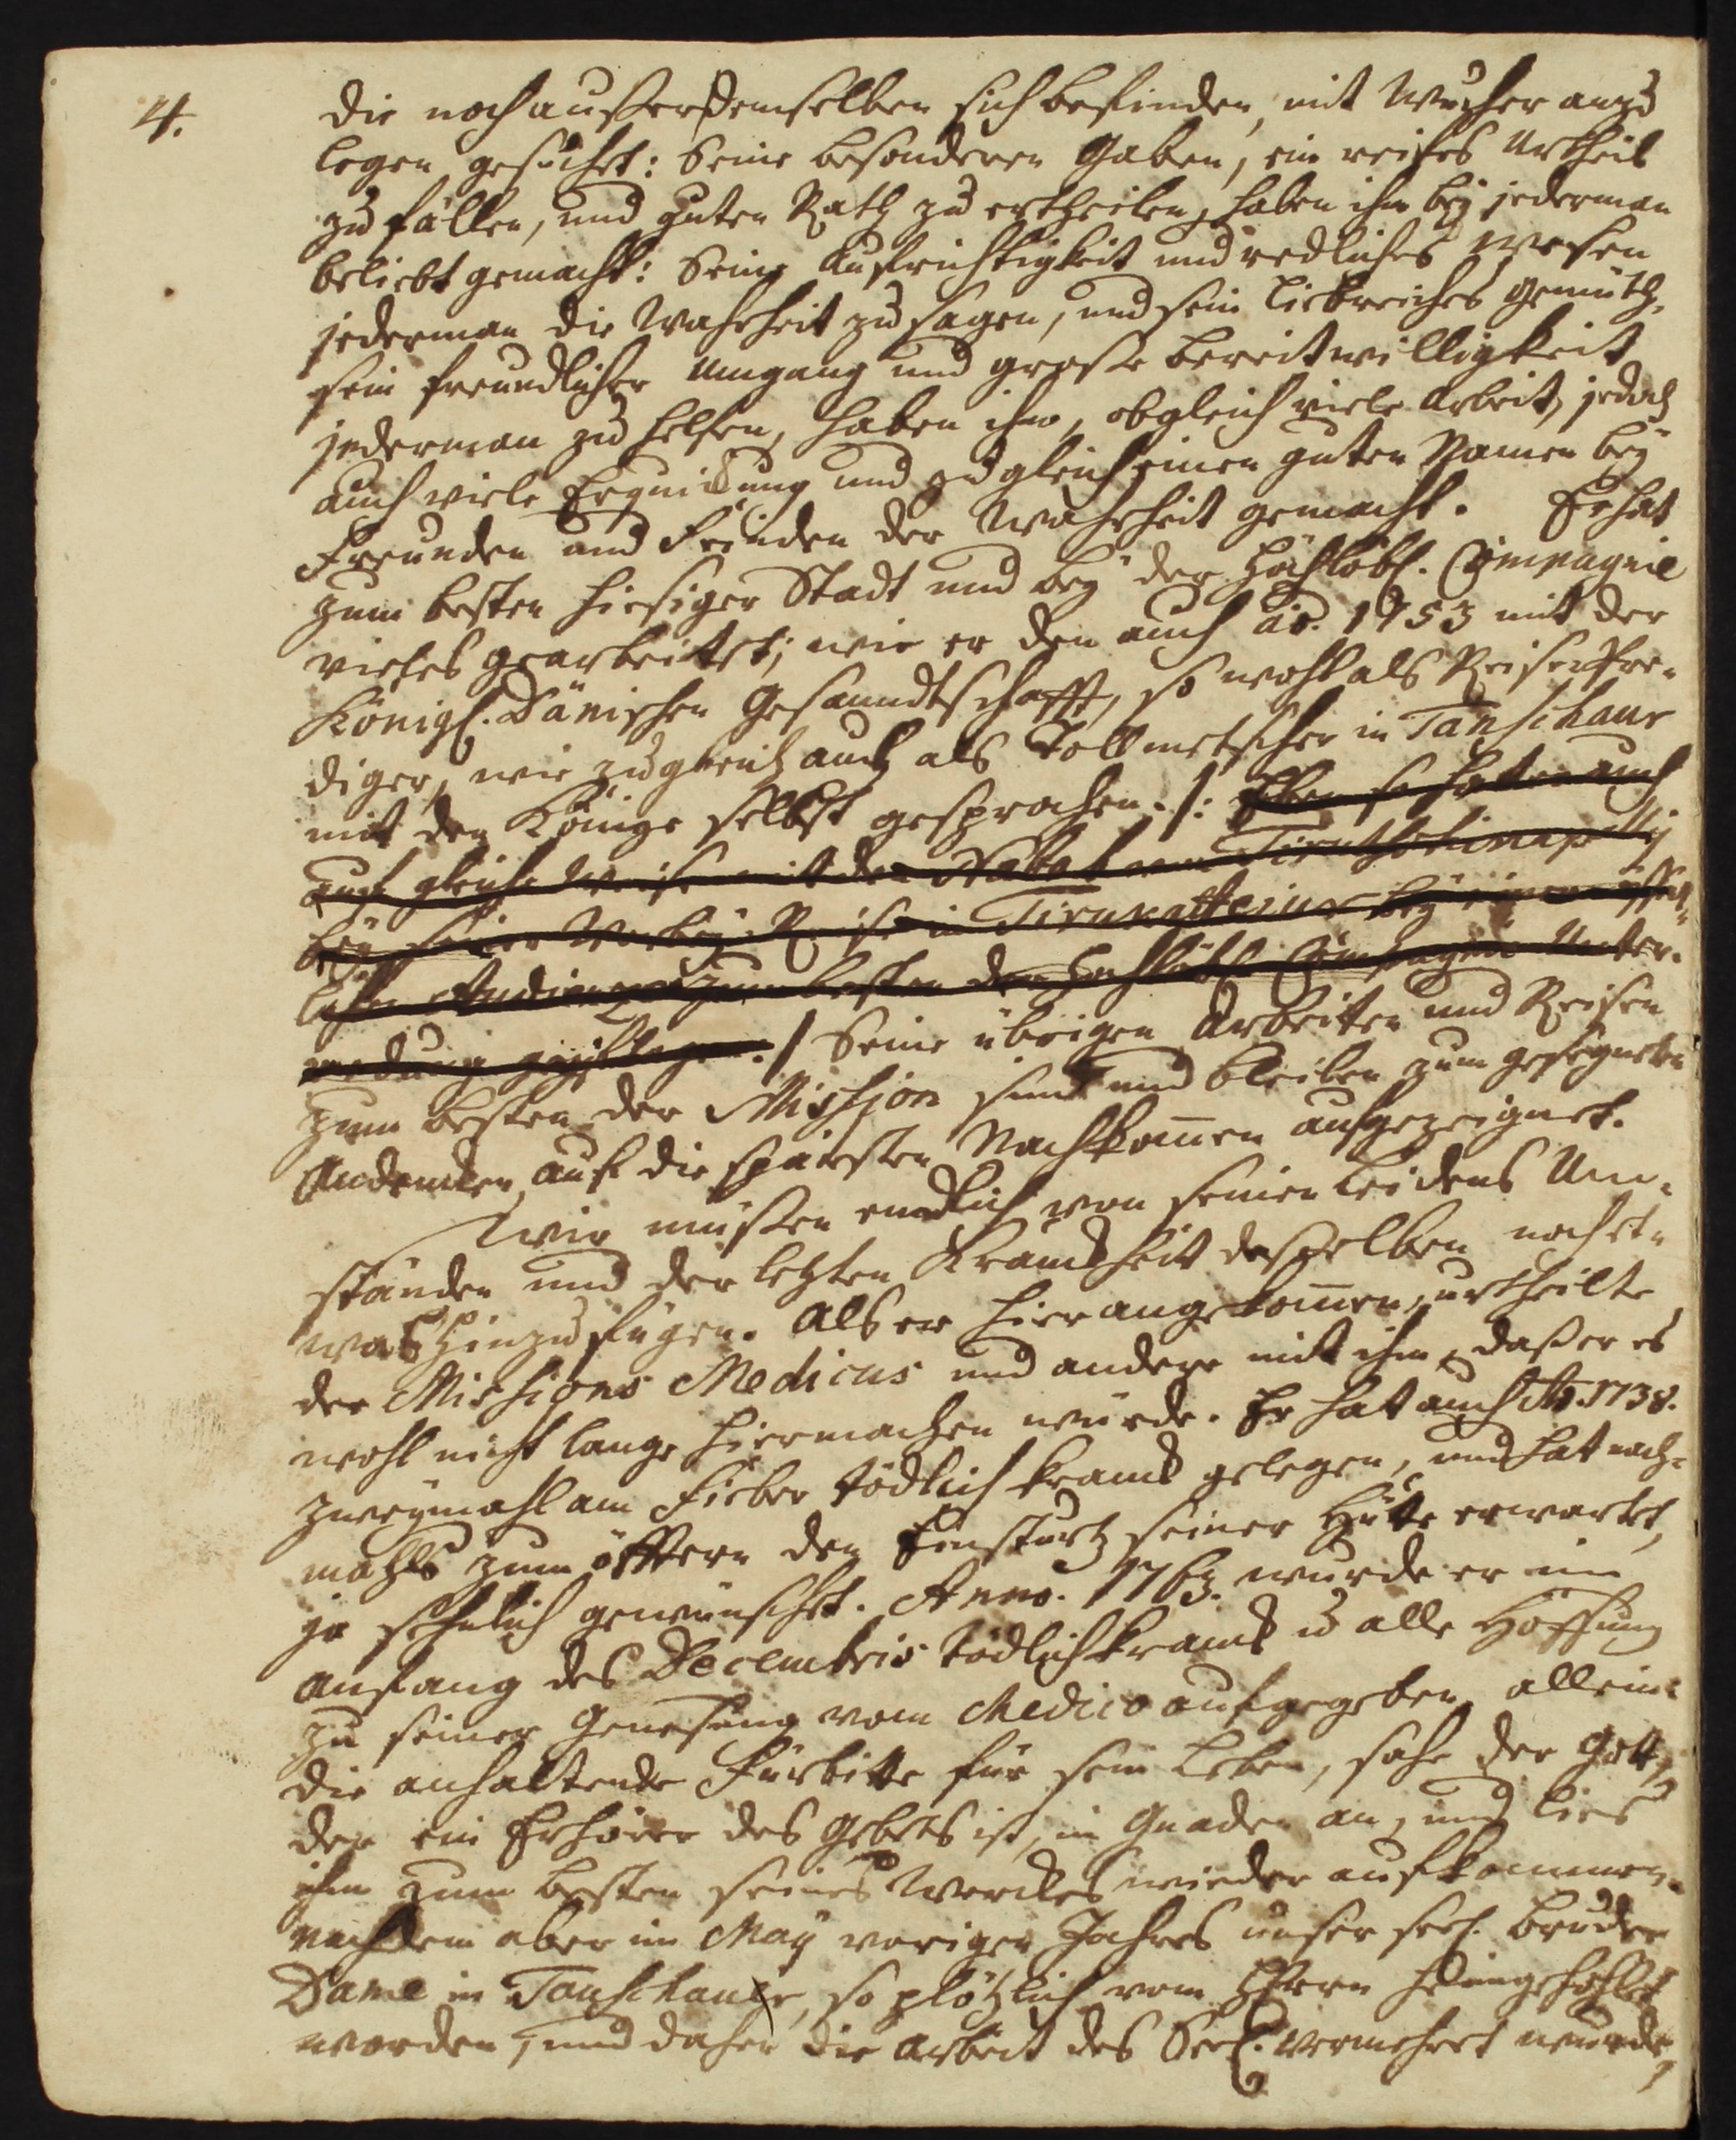 4.
die noch außer demselben sich befinden, mit Wucher anzu
legen gesuchet: Seine besonderen Gaben, ein reifes Urtheil
zu fällen, und guten Rath zu ertheilen, haben ihn bey jederman
beliebt gemacht: Seine Aufrichtigkeit und redliches Wesen
jederman die Wahrheit zu sagen, und sein liebreiches Gemüth,
sein freundlicher Umgang und große bereitwilligkeit
jederman zu helfen, haben ihm, obgleich viele Arbeit, jedoch
auch viele Erquickung und zugleich einen guten Namen bey
Freunden und Feinden der Wahrheit gemacht. Er hat
zum besten hiesiger Stadt und bey der Hochlöbl. Compagnie
vieles gearbeitet; wie er den auch ao. 1753 mit der
Königl. Dänischen Gesandtschafft, so wohl als Reise Pre-
diger, wie zugleich auch als Tollmetscher in Tanschaur
mit den Könige selbst gesprochen. /: Eben so hat er auch
auf gleiche Weise mit den Nabab von Tirutschinapalli
bey seiner Reise in bey einer öffent-
lichen Audience zum besten der Hochlöbl. Compagnie Unter-
redung gepflogen :/ Seine übrigen Arbeiten und Reisen
zum besten der Mission sind und bleiben zum gesegneten
Andencken auf die spätesten Nachkom̅en aufgezeignet.
Wir müßen endlich von seinen Leidens Um-
ständen und der letzten Kranckheit deßelben noch et-
was hinzu fügen. Als er hier angekom̅en, urtheilte
der Missions Medicus und andere mit ihm, daß er es
wohl nicht lange hier machen würde. Er hat auch Ao. 1738.
zweymahl am Fieber tödlich kranck gelegen, und hat nach-
mahls zum öfftern den Einsturtz seiner Hütte erwartet,
ja sehnlich gewünschet. Anno. 1763. wurde er im
anfang des Decembris tödlich kranck u alle Hoffnung
zu seiner Genesung vom Medico aufgegeben, allein
die anhaltende Fürbitte für sein Leben, sahe der Gott,
der ein Erhörer des Gebets ist, in Gnaden an, und lies
ihn zum besten seines Werckes wieder aufkommen.
nachdem aber im May vorigen Jahres unser seel. bruder
Dame in Tanschaur, so plötzlich vom HErrn heimgehohlet
worden, und daher die Arbeit des Seel. vermehret wurde,